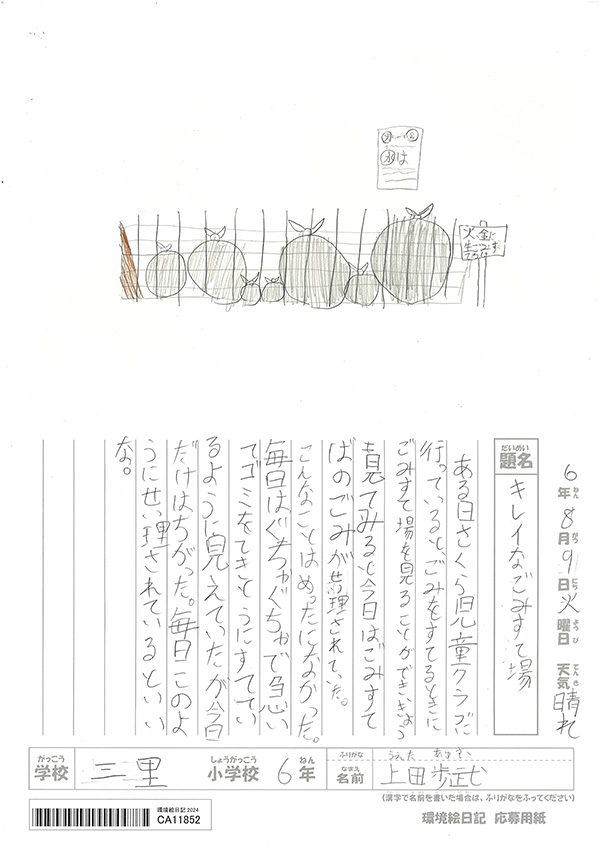 火 金に
生ごみす
6年8月9日火曜日 天気 晴れ
ねん がつ にち ようび てんき
だいめい
題名 キレイなごみすて場
ある日さくら児童クラブに
行っていると、ごみをすてるときに
ごみすて場を見ることができきょう
見てみると今日はごみすて
ばのごみが整理されていた。
こんなことはめったになかった。
毎日はぐちゃぐちゃで急い
でゴミをてきとうにすててい
るように見えていたが今日
だけはちがった。毎日このよ
うにせい理されているといい
な。
がっこう
学校 三里 しょうがっこう 小学校 6年 ねん
ふりがな うえた
なまえ
名前 上田
(漢字で名前を書いた場合は、ふりがなをふってください)
環境絵日記2024
CA11852
環境絵日記 応募用紙